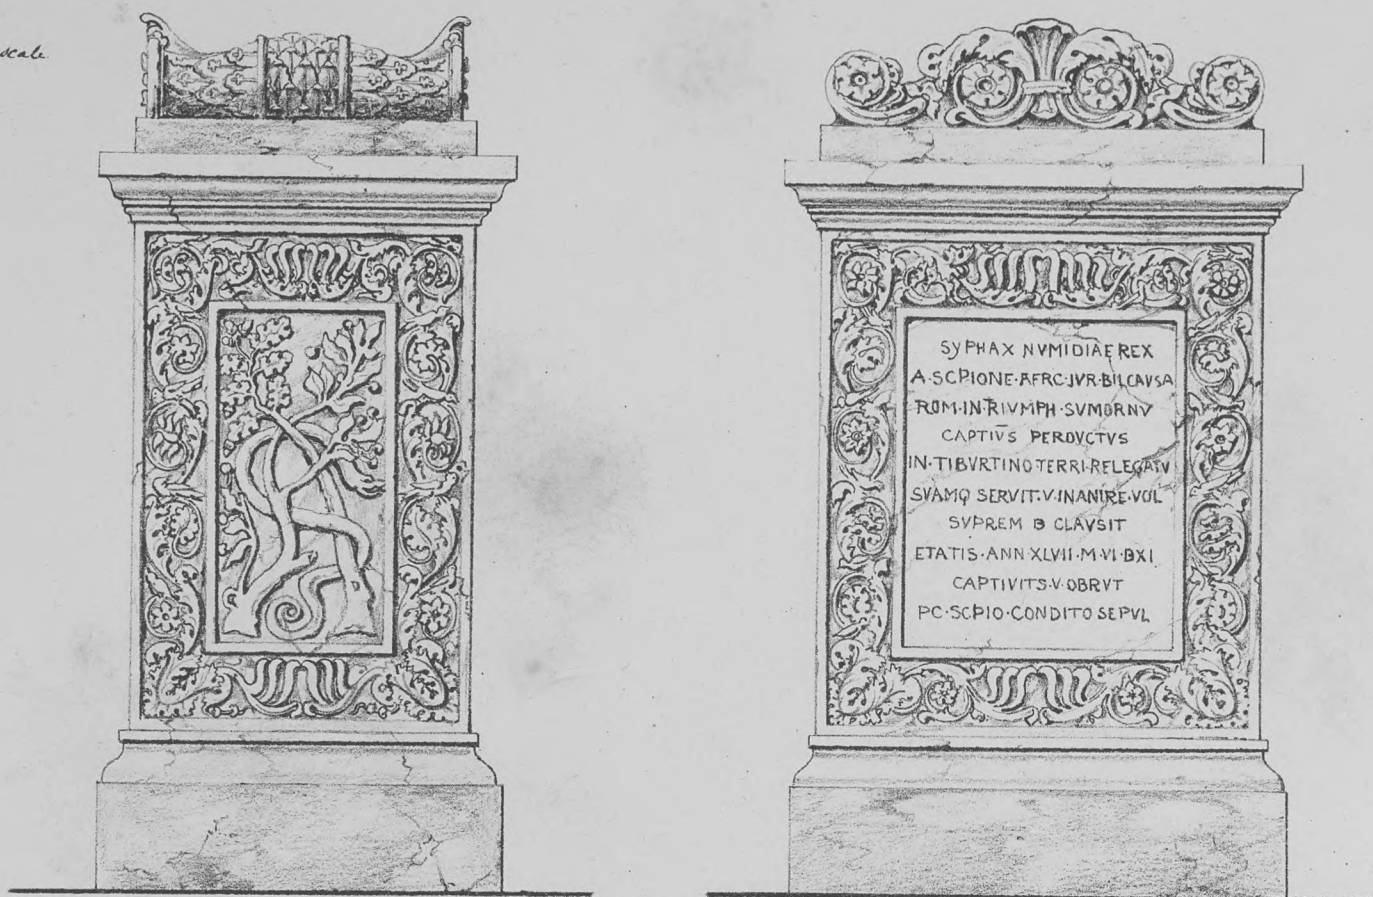 scale
SYPHAX NVMIDIAE REX
A·SCPIONE·AFRC·JVR·BILCAVSA
ROM·IN·TRIVMPH·SVMORNV
CAPTIVS PERDVCTVS
IN·TIBVRTINO TERRI·RELEGATV
SVAMQ SERVIT·V·IN ANIRE·VOL
SVPREM D CLAVSIT
ETATIS·ANN·XLVII·M·VI·DXI
CAPTIVITS·V·OBRVT
PC·SCPIO·CONDITO SEPVL